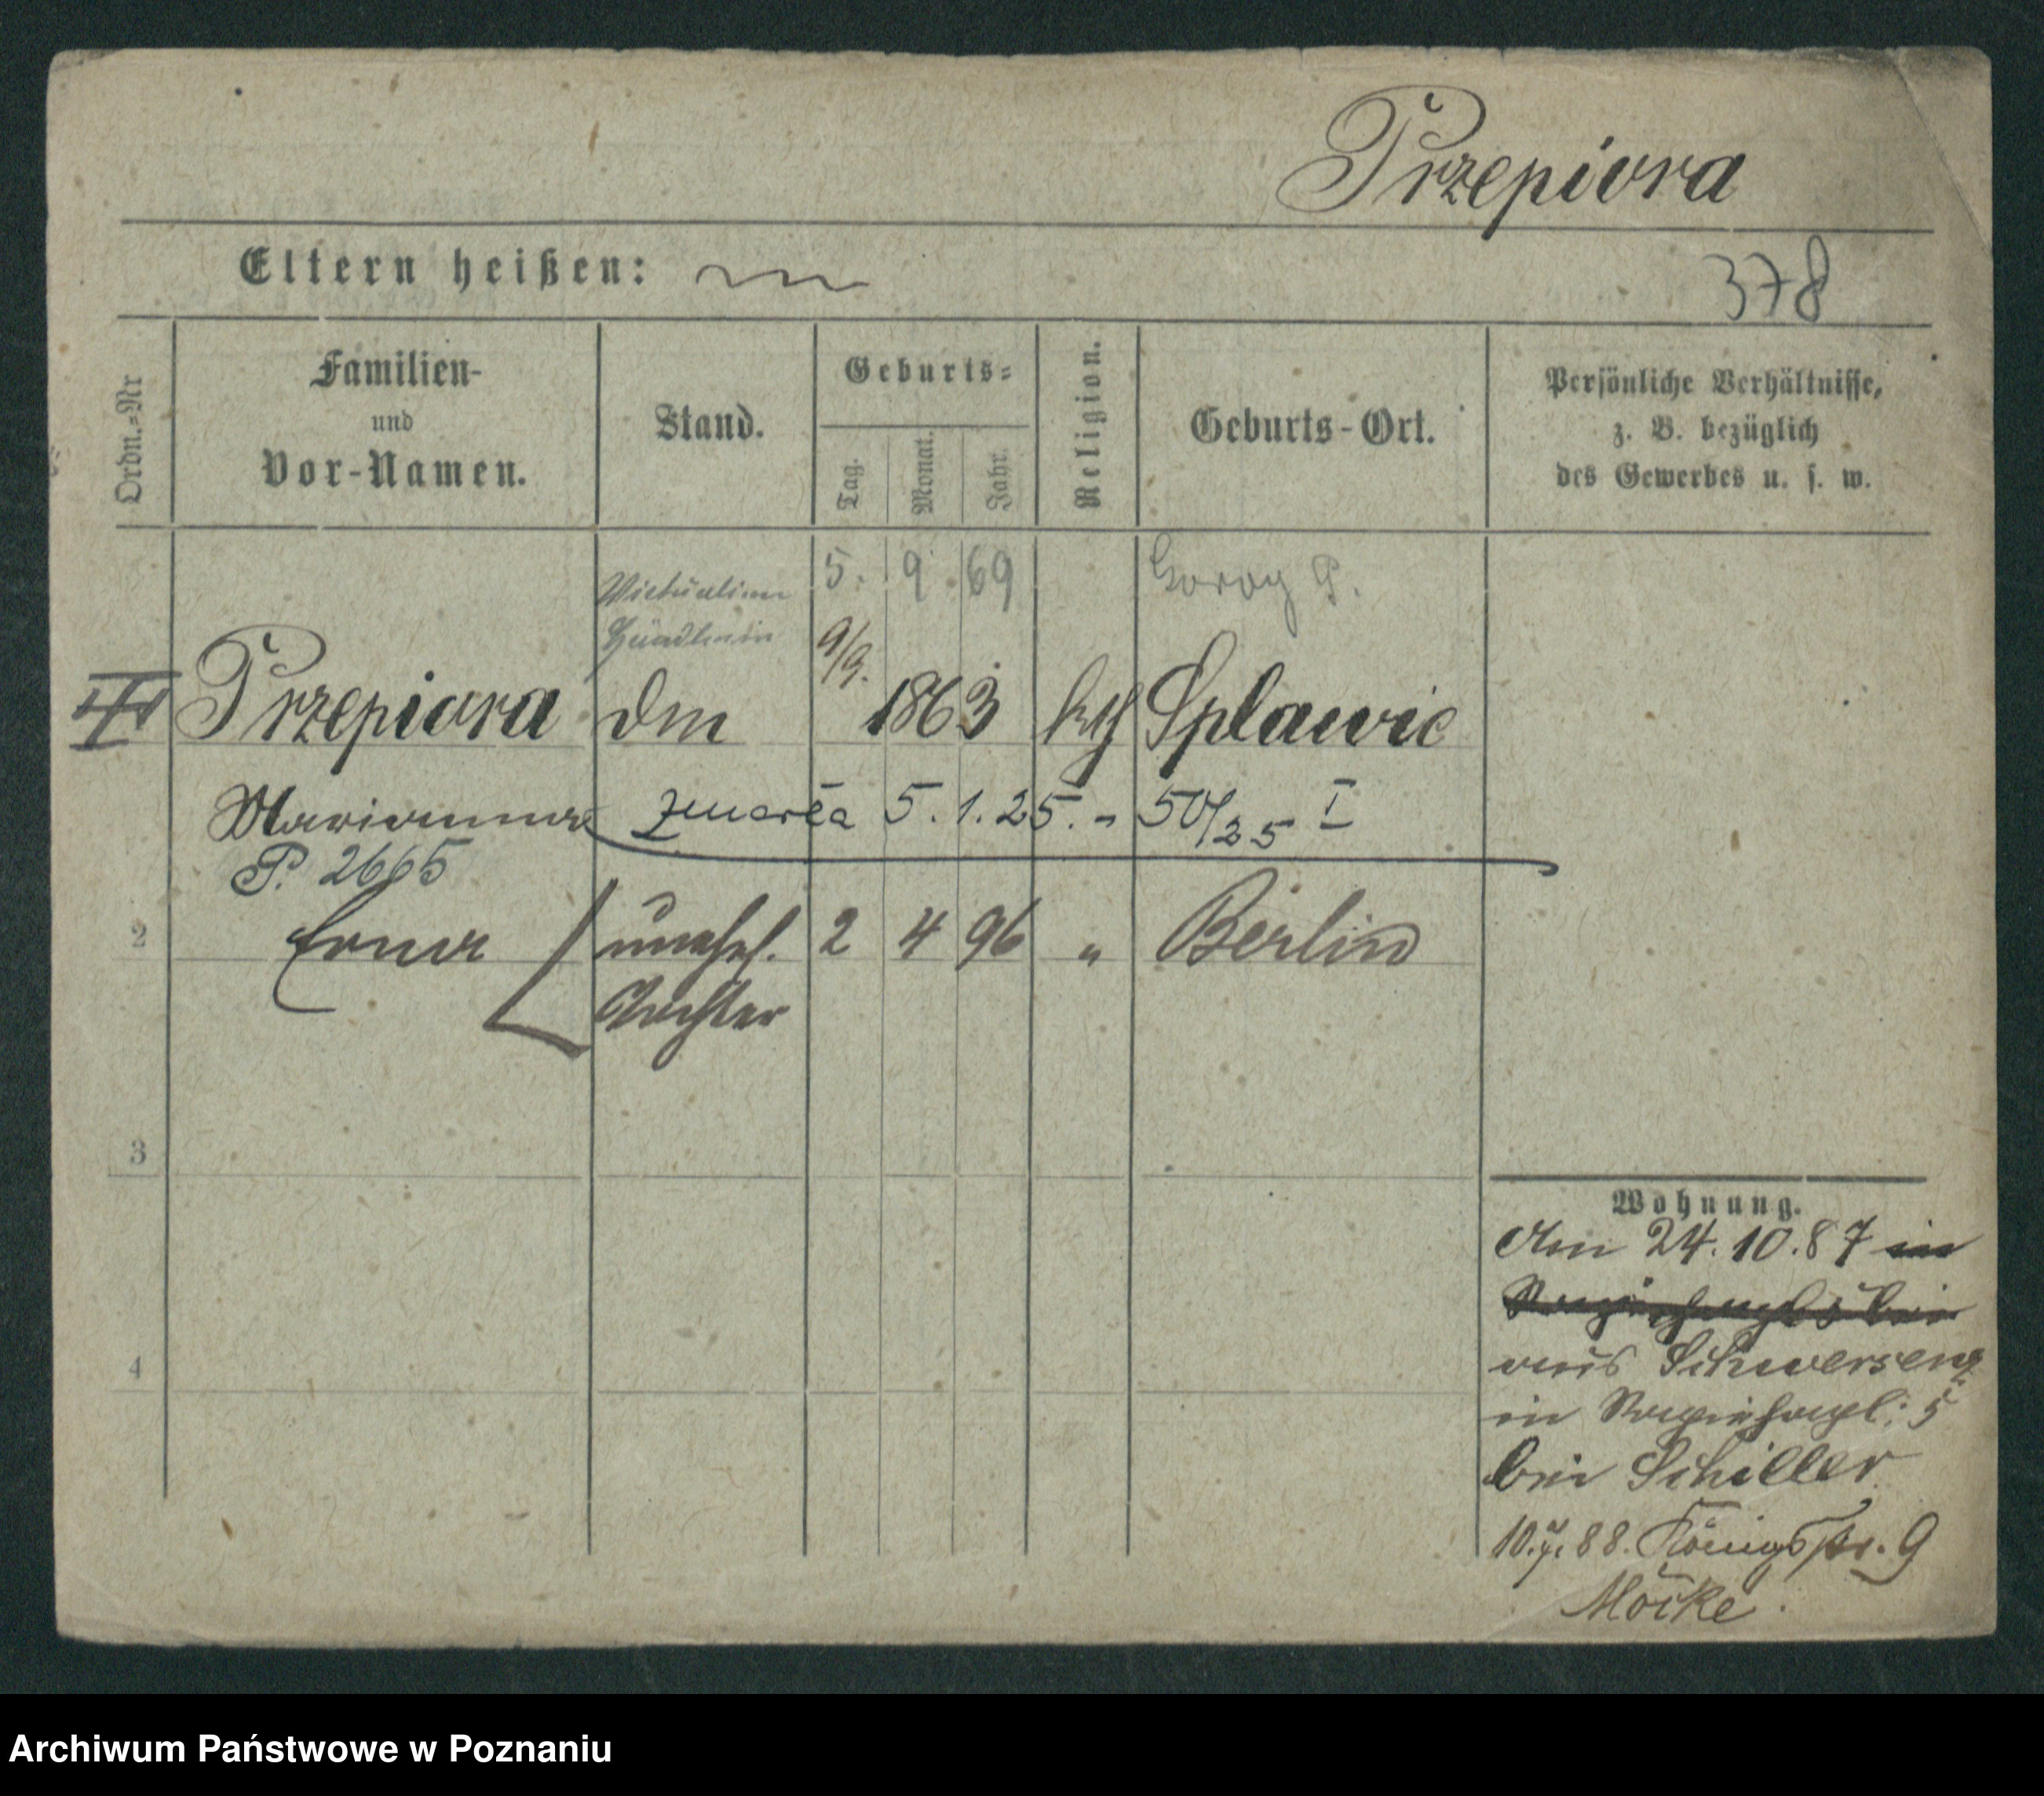 Przepiora
Eltern heißen:
378
Ordn.-Nr
Familien-
und
Vor-Namen.
Stand.
Geburts-
Tag.
Monat.
Jahr.
Religion.
Geburts-Ort.
Persönliche Verhältnisse,
z. B. bezüglich
des Gewerbes u. s. w.
Victualien 5. 9 69
Händlerin 9/9.
Przepiora 1863 kth Splawie
Marianna zmarła 5.1.25. - 501/25 I
P. 2665
2 unehel. 2 4 96 " Berlin
Tochter
3
4
Wohnung.
Am 24.10.87 in
aus Schwersenz
in 5
bei Schiller
88. Königsstr. 9
Möcke.
Archiwum Państwowe w Poznaniu